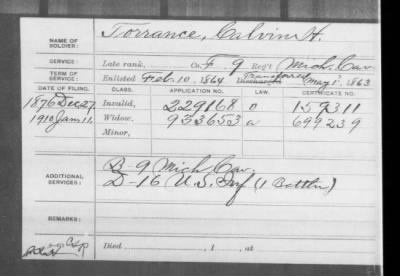 NAME OF SOLDIER: Torrance, Calvin H.
SERVICE: Late rank, Co. F 9 Reg't Mich. Cav.
TERM OF SERVICE: Enlisted Feb. 10, 1864 Transferred Discharged May 1, 1863
DATE OF FILING. CLASS. APPLICATION NO. LAW. CERTIFICATE NO.
1876 Dec 27 Invalid, 229168 157311
1910 Jan 11, Widow, 933653 a 699239
Minor,
ADDITIONAL SERVICES: B-9 Mich Cav.
D-16 U.S. Inf (1 Battln)
REMARKS:
Died , 1 , at